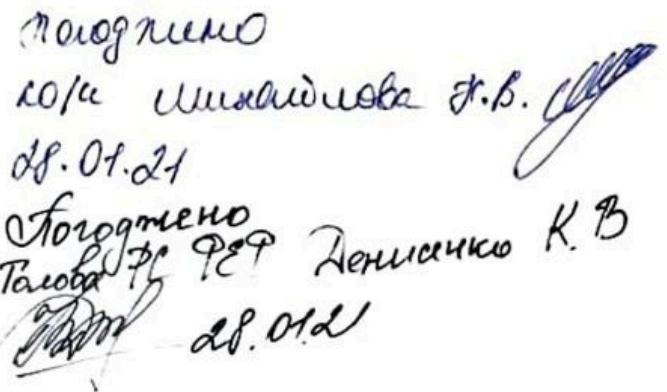 Погоджено
Михайлова Н.В.
28.01.21
Погоджено
Голова РС ФЕФ Денисенко К.В
28.01.21